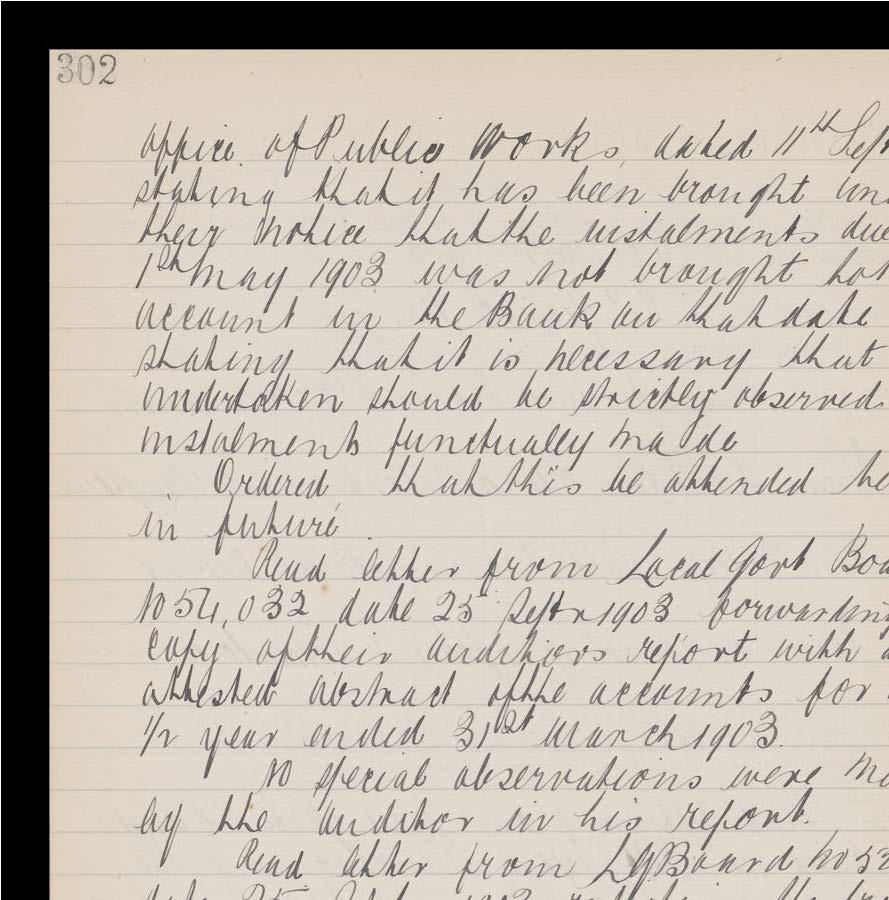 302
office of Public Works, dated 11th Sept
stating that it has been brought un
their notice that the instalments due
1st May 1903 was not brought to
account in the Bank on that date
stating that it is necessary that
undertaken should be strictly observed
instalments punctually made
Ordered that this be attended to
in future
Read letter from Local Govt Boa
No 54,032 date 25 Septr 1903 forwarding
copy of their auditors report with a
attested abstract of the accounts for
1/2 year ended 31st March 1903.
No special observations were ma
by the auditor in his report.
Read letter from LGBoard No 53